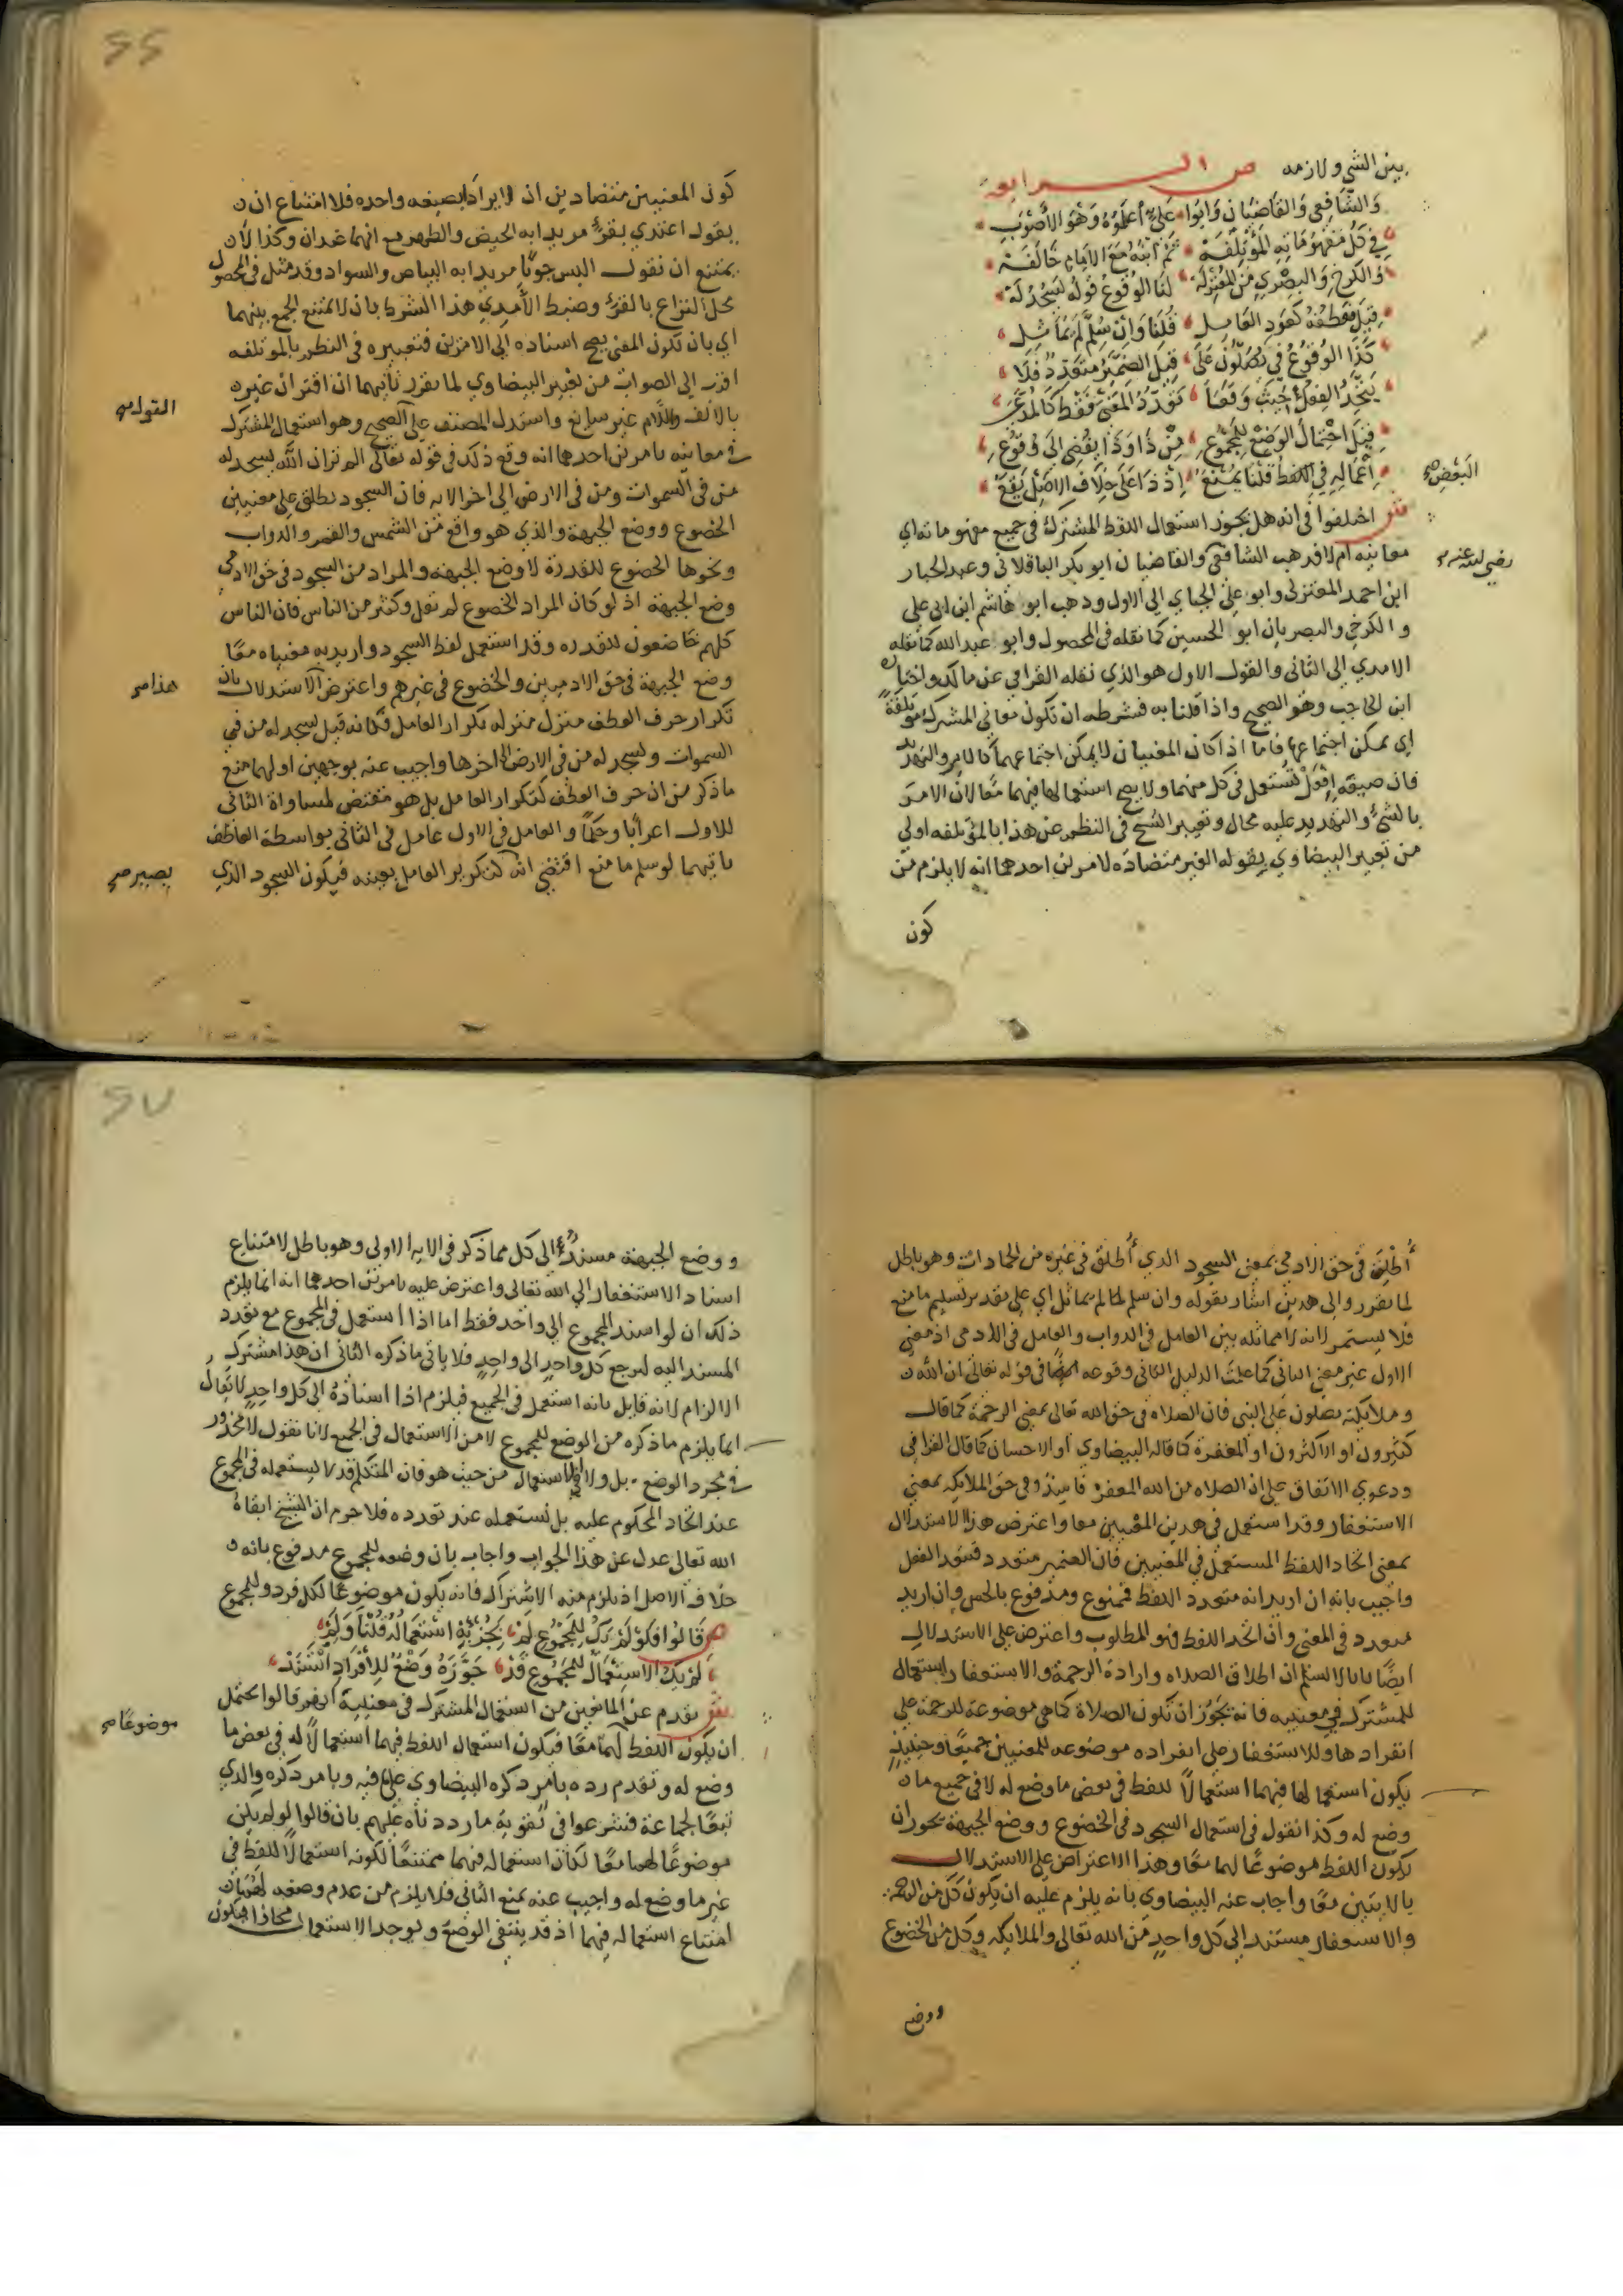 بين الشي ولازمه ص الــرابعه
والشافعي والقاضيان وابوا علي اعملوه وهو الاصوب
في كل مفهوماته المؤتلفة ثم ابنه مع الامام خالفه
والكرخي والبصري من المعتزلة لنا الوقوع قوله يسجد له
قيل فعطفه كعود العامل قلنا وان سلم لم يماثل
كذا الوقوع في يصلون على قيل الضمير متعدد فلا
يتحد الفعل اجيب وقعا تعدد المعنى فقط كالمدعى
قيل احتمال الوضع للمجموع من ذا وذا يفضي الى وقوع
اعماله في اللفظ قلنا يمتنع اذ ذا على خلاف الاصل يقع
البعض صح
ش اختلفوا في انه هل يجوز استعمال اللفظ المشترك في جميع مفهوماته اي
معانيه ام لا فذهب الشافعي والقاضيان ابو بكر الباقلاني وعبد الجبار
رضي الله عنه صح
ابن احمد المعتزلي وابو علي الجباي الى الاول وذهب ابو هاشم ابن ابي علي
والكرخي والبصريان ابو الحسين كما نقله في المحصول وابو عبد الله كما نقله
الامدي الى الثاني والقول الاول هو الذي نقله القرافي عن مالك واختاره
ابن الحاجب وهو الصحيح واذا قلنا به فشرطه ان تكون معاني المشترك موتلفة
اي يمكن اجتماعها فاما اذا كان المعنيان لا يمكن اجتماعهما كالامر والتهديد
فان صيغة افعل تستعمل في كل منهما ولا يصح استعمالها فيهما معا لان الامر
بالشيء والتهديد عليه محال وتعبير الشيخ في النظم عن هذا بالموتلفه اولى
من تعبير البيضاوي بقوله الغير متضاده لامرين احدهما انه لا يلزم من
كون
كون المعنيين متضادين ان لا يرادا بصيغه واحده فلا امتناع ان
يقول اعتدي بقرء مريدا به الحيض والطهر مع انهما ضدان وكذا لا
يمتنع ان نقول البس جونا مريدا به البياض والسواد وقد مثل في المحصول
محل النزاع بالقرء وضبط الآمدي هذا الشرط بان لا يمتنع الجمع بينهما
اي بان تكون المعنى يصح اسناده الى الامرين فتعبيره في النظم بالموتلفه
اقرب الى الصواب من تعبير البيضاوي لما تقرر ثانيهما ان اقتران غيره
بالالف واللام غير سايغ واستدل المصنف على الصحيح وهو استعمال المشترك
القول صح
في معانيه بامرين احدهما انه وقع ذلك في قوله تعالى الم تر ان الله يسجد له
من في السموات ومن في الارض الى اخر الايه فان السجود يطلق على معنيين
الخضوع ووضع الجبهة والذي هو واقع من الشمس والقمر والدواب
ونحوها الخضوع للقدرة لا وضع الجبهه والمراد من السجود في حق الادمي
وضع الجبهة اذ لو كان المراد الخضوع لم نقل وكثير من الناس فان الناس
كلهم خاضعون للقدره وقد استعمل لفظ السجود واريد به معنياه معا
وضع الجبهة في حق الادميين والخضوع في غيرهم واعترض الاستدلال بان
هذا صح
تكرار حرف العطف منزل منزله تكرار العامل فكانه قيل يسجد له من في
السموات ويسجد له من في الارض الى اخرها واجيب عنه بوجهين اولهما منع
ما ذكر من ان حرف العطف كتكرار العامل بل هو مقتض لمساواة الثاني
للاول اعرابا وحكما والعامل في الاول عامل في الثاني بواسطة العاطف
ثانيهما لو سلم ما منع اقتضى انه كتكرير العامل بعينه فيكون السجود الذي
بصير صح
أطلق في حق الادمي بمعنى السجود الذي أطلق في غيره من الجمادات وهو باطل
لما تقرر والى هذين اشار بقوله وان سلم لما لم يماثل اي على تقدير تسليم ما منع
فلا يستمر لانه لا مماثله بين العامل في الدواب والعامل في الادمي اذ معنى
الاول غير معنى الثاني كما علمت الدليل الثاني وقوعه ايضا في قوله تعالى ان الله
وملايكته يصلون على النبي فان الصلاه في حق الله تعالى بمعنى الرحمة كما قال
كثيرون او الاكثرون او المغفرة كما قاله البيضاوي او الاحسان كما قال القرافي
ودعوي الاتفاق على ان الصلاه من الله المغفرة فاسدة وفي حق الملايكه بمعنى
الاستغفار وقد استعمل في هذين المعنيين معا واعترض هذا الاستدلال
بمعنى اتحاد اللفظ المستعمل في المعنيين فان الضمير متعدد فتعدد الفعل
واجيب بانه ان اريد انه متعدد اللفظ فممنوع ومدفوع بالحس وان اريد
تعدده في المعنى وان اتحد اللفظ فهو المطلوب واعترض على الاستدلال
ايضا بانا لا نسلم ان اطلاق الصلاه وارادة الرحمة والاستغفار استعمال
للمشترك في معنييه فانه يجوز ان تكون الصلاة كما هي موضوعة للرحمة على
انفرادها وللاستغفار على انفراده موضوعه للمعنيين جميعا وحينيذ
يكون استعمالها فيهما استعمالا للفظ في بعض ما وضع له لا في جميع ما
وضع له وكذا نقول في استعمال السجود في الخضوع ووضع الجبهة يجوز ان
يكون اللفظ موضوعا لهما معا وهذا الاعتراض على الاستدلال
بالايتين معا واجاب عنه البيضاوي بانه يلزم عليه ان يكون كل من الرحمة
والاستغفار مستند الى كل واحد من الله تعالى والملايكه وكل من الخضوع
ووضع
ووضع الجبهة مسندا الى كل مما ذكر في الايه الاولى وهو باطل لامتناع
اسناد الاستغفار الى الله تعالى واعترض عليه بامرين احدهما انه انما يلزم
ذلك ان لو اسند المجموع الى واحد فقط اما اذا استعمل في المجموع مع تعدد
المسند اليه ليرجع كل واحد الى واحد فلا ياتي ما ذكره الثاني ان هذا مشترك
الالزام لانه قايل بانه استعمل في الجميع فيلزم اذا اسناده الى كل واحد لا يقال
انما يلزم ما ذكره من الوضع للمجموع لا من الاستعمال في الجمع لانا نقول لا محذور
في مجرد الوضع بل ولا في الاستعمال من حيث هو فان المتكلم قد لا يستعمله في المجموع
عند اتحاد المحكوم عليه بل يستعمله عند تعدده فلا جرم ان الشيخ ابقاه
الله تعالى عدل عن هذا الجواب واجاب بان وضعه للمجموع مدفوع بانه
خلاف الاصل اذ يلزم منه الاشتراك فانه يكون موضوعا لكل فرد وللمجموع
ص قالوا فلو لم يك للمجموع لم يجز به استعماله قلنا ولم
لم يك الاستعمال للمجموع قد جوزه وضع للافراد استند
ش تقدم عن المانعين من استعمال المشترك في معنييه انهم قالوا يحتمل
ان يكون اللفظ لهما معا فيكون استعمال اللفظ فيهما استعمالا له في بعض ما
موضوعا صح
وضع له وتقدم رده بامر ذكره البيضاوي على ما فيه وبامر ذكره والدي
تبعا لجماعة فشرعوا في تقوية ما رددناه عليهم بان قالوا لو لم يكن
موضوعا لهما معا لكان استعماله فيهما ممتنعا لكونه استعمالا للفظ في
غير ما وضع له واجيب عنه بمنع الثاني فلا يلزم من عدم وصفه لهما
امتناع استعماله فيهما اذ قد ينتفي الوضع ويوجد الاستعمال مجازا فيكون